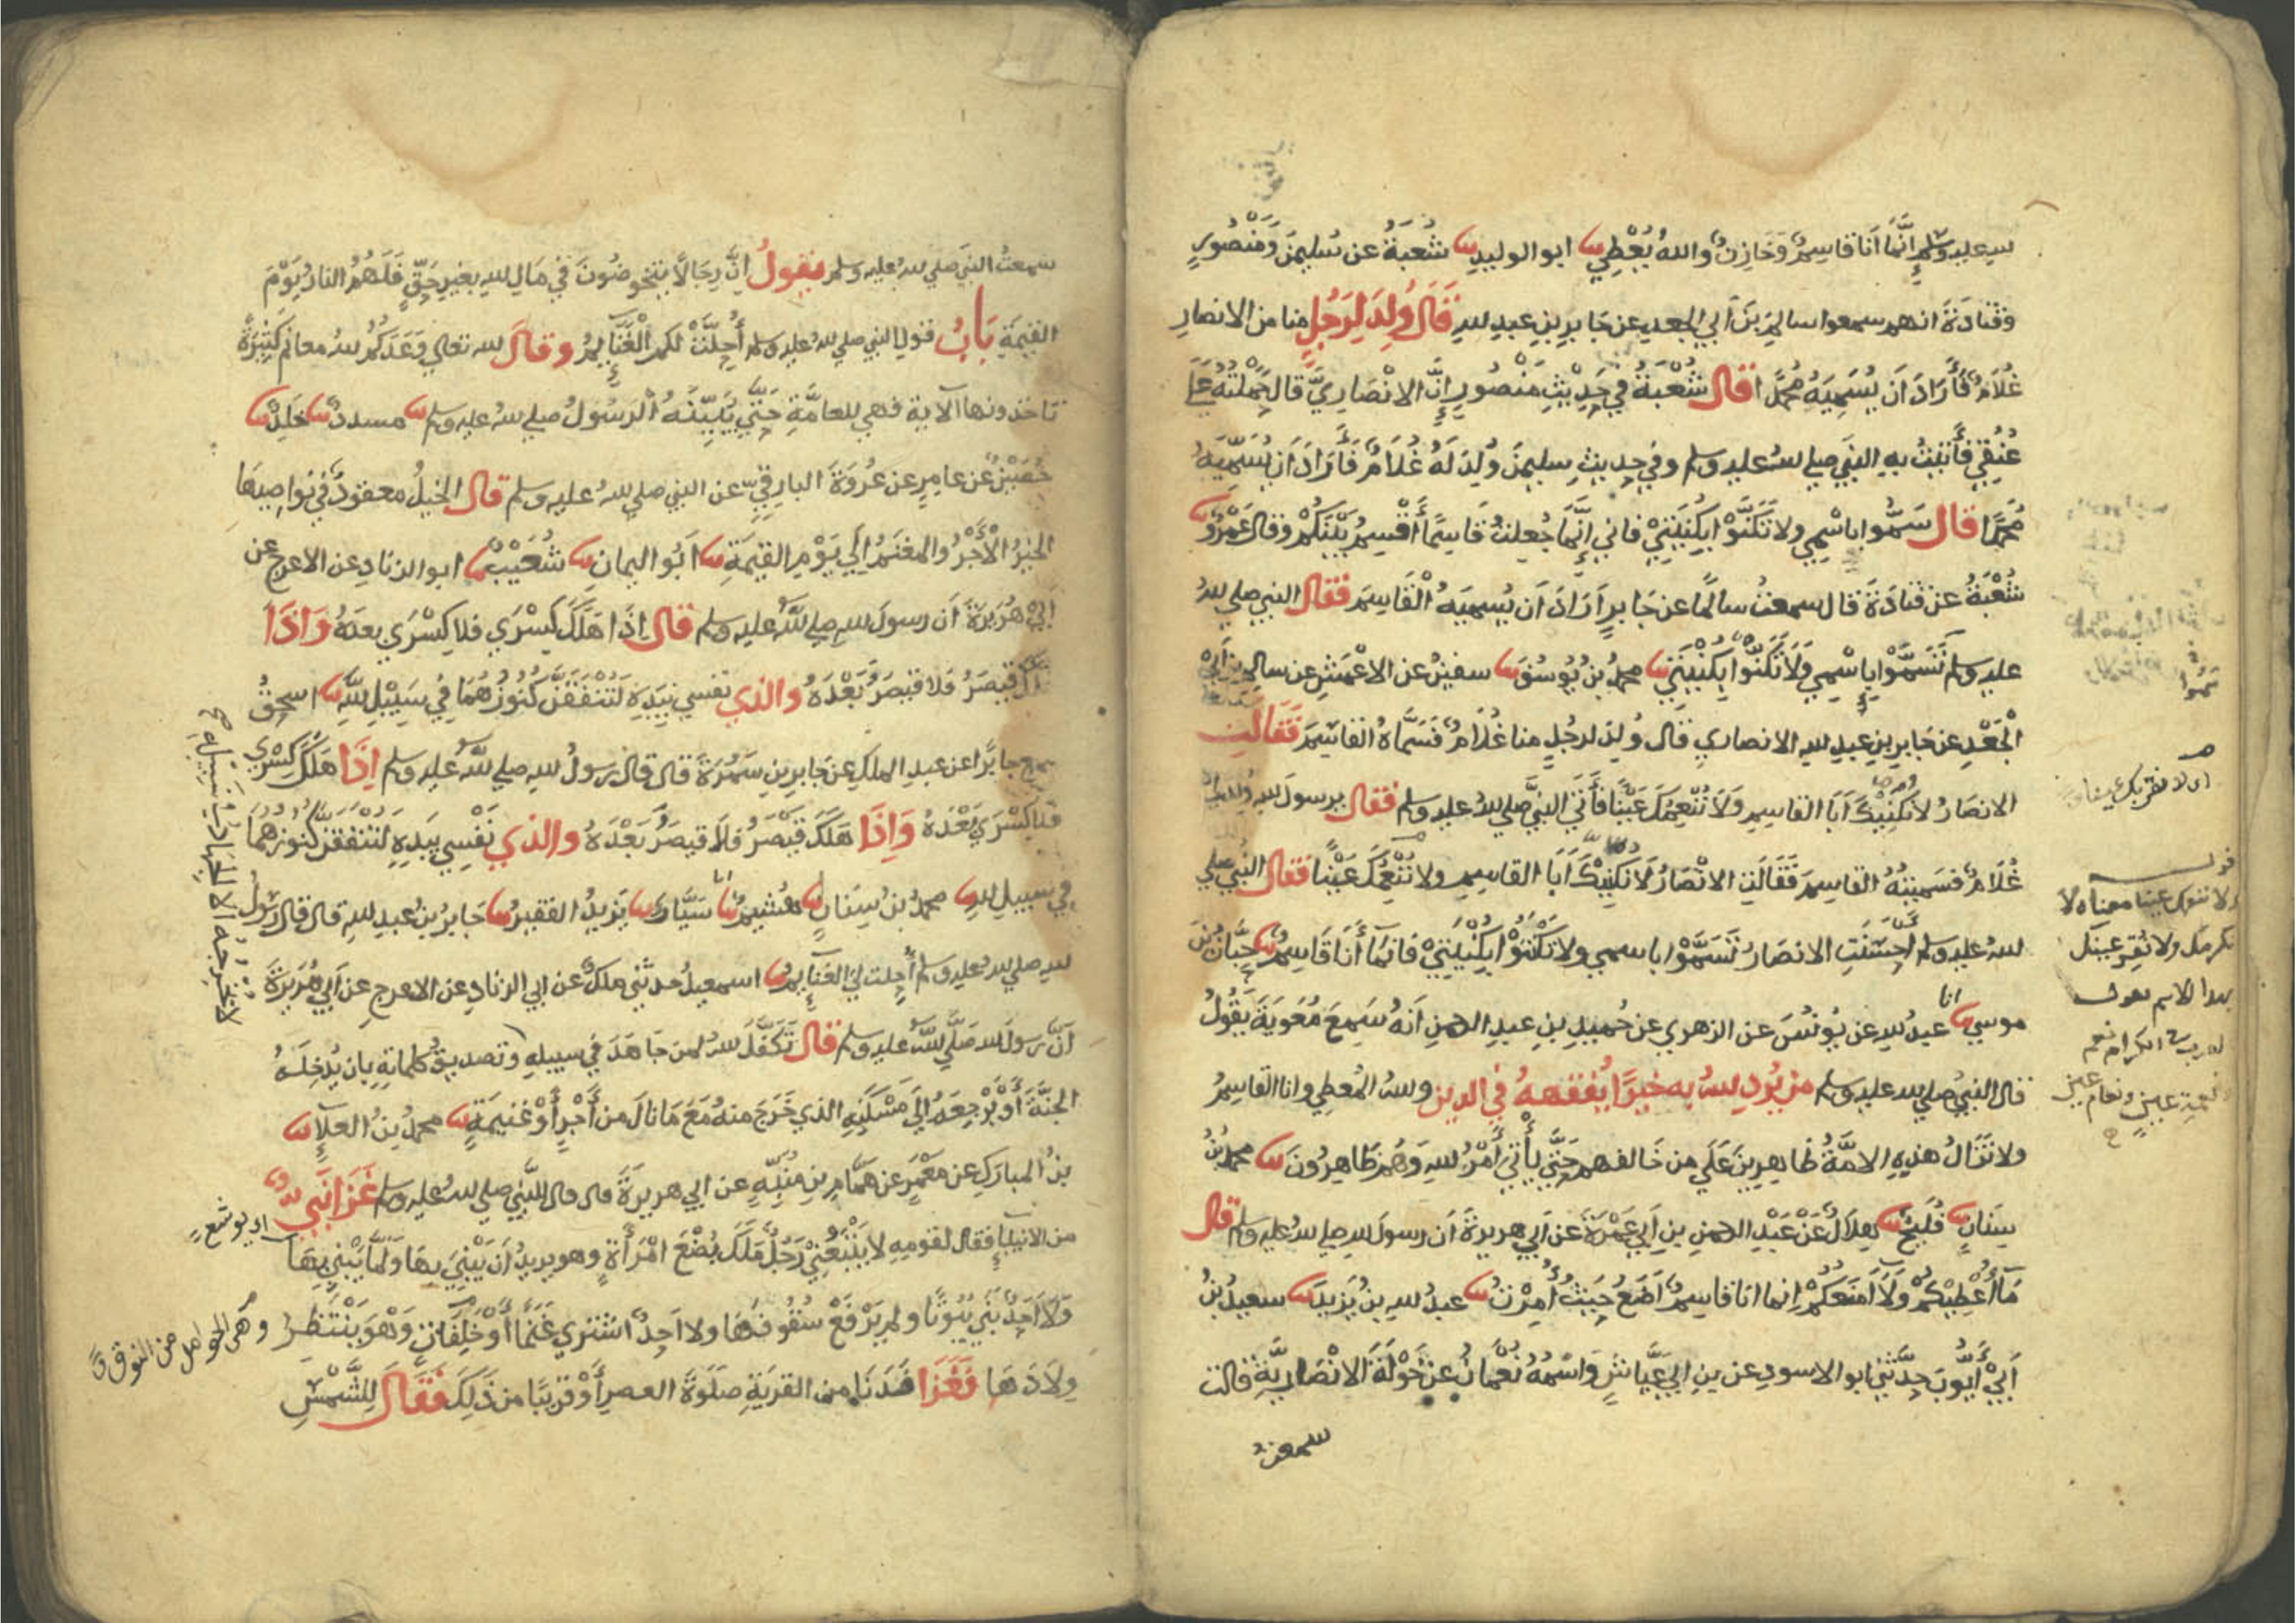 لله عليه وسلم إنما أنا قاسم وخازن والله يعطي ثنا ابو الوليد ثنا شعبة عن سليمن ومنصور
وقتادة انهم سمعوا سالم بن أبي الجعد عن جابر بن عبد لله قال ولد لرجل منا من الانصار
غلام فأراد أن يسميه محمدا قال شعبة في حديث منصور إن الانصاري قال حملته على
عنقي فأتيت به النبي صلي لله عليه وسلم وفي حديث سليمن ولد له غلام فأراد أن يسميه
محمدا قال سموا باسمي ولا تكنوا بكنيتي فاني إنما جعلت قاسما أقسم بينكم وقال عمرو ثنا
شعبة عن قتادة قال سمعت سالما عن جابر أراد أن يسميه القاسم فقال النبي صلي لله
عليه وسلم تسموا باسمي ولا تكنوا بكنيتي ثنا محمد بن يوسف ثنا سفين عن الاعمش عن سالم بن أبي
الجعد عن جابر بن عبد لله الانصاري قال ولد لرجل منا غلام فسماه القاسم فقالت
الانصار لا نكنيك أبا القاسم ولا ننعمك عينا فأتي النبي صلي لله عليه وسلم فقال يرسول لله ولد لي
غلام فسميته القاسم فقالت الانصار لا نكنيك أبا القاسم ولا ننعمك عينا فقال النبي صلي
لله عليه وسلم أحسنت الانصار تسموا باسمي ولا تكنوا بكنيتي فانما أنا قاسم ثنا حبان بن
موسي ثنا انا عبد لله عن يونس عن الزهري عن حميد بن عبد الرحمن أنه سمع معوية يقول
قال النبي صلي لله عليه وسلم من يرد لله به خيرا يفقهه في الدين ولله المعطي وانا القاسم
ولا تزال هذه الامة ظاهرين علي من خالفهم حتي يأتي أمر لله وهم ظاهرون ثنا محمد بن
سنان ثنا فليح ثنا هلال عن عبد الرحمن بن أبي عمرة عن أبي هريرة أن رسول لله صلي لله عليه وسلم قال
ما أعطيكم ولا أمنعكم إنما انا قاسم أضع حيث أمرت ثنا عبد لله بن يزيد ثنا سعيد بن
أبي أيوب حدثني ابو الاسود عن بن ابي عياش واسمه نعمان عن خولة الانصارية قالت
سمعت
تسموا
اى لا نقر بك عينا
قوله
ولا ننعمك عينا معناه لا
نكرمك ولا نقر عينك
بهذا الاسم
سمعت النبي صلي لله عليه وسلم يقول إن رجالا يتخوضون في مال لله بغير حق فلهم النار يوم
القيمة باب قول النبي صلي لله عليه وسلم أحلت لكم الغنايم وقال لله تعالي وعدكم لله مغانم كثيرة
تاخذونها الآية فهي للعامة حتي يبينه الرسول صلي لله عليه وسلم ثنا مسدد ثنا خلد ثنا
حصين عن عامر عن عروة البارقي عن النبي صلي لله عليه وسلم قال الخيل معقود في نواصيها
الخير الأجر والمغنم الي يوم القيمة ثنا أبو اليمان ثنا شعيب ثنا ابو الزناد عن الاعرج عن
أبي هريرة أن رسول لله صلي لله عليه وسلم قال إذا هلك كسري فلا كسري بعده وإذا
هلك قيصر فلا قيصر بعده والذي نفسي بيده لتنفقن كنوزهما في سبيل لله ثنا اسحق
سمع جابرا عن عبد الملك عن جابر بن سمرة قال قال رسول لله صلي لله عليه وسلم إذا هلك كسري
فلا كسري بعده وإذا هلك قيصر فلا قيصر بعده والذي نفسي بيده لتنفقن كنوزهما
في سبيل لله ثنا محمد بن سنان ثنا هشيم ثنا انا سيار ثنا يزيد الفقير ثنا جابر بن عبد لله قال قال رسول
لله صلي لله عليه وسلم أحلت لي الغنايم ثنا اسمعيل حدثني ملك عن ابي الزناد عن الاعرج عن أبي هريرة
أن رسول لله صلي لله عليه وسلم قال تكفل لله لمن جاهد في سبيله وتصديق كلماته بان يدخله
الجنة أو يرجعه إلي مسكنه الذي خرج منه مع ما نال من أجر أو غنيمة ثنا محمد بن العلاء ثنا
بن المبارك عن معمر عن همام بن منبه عن ابي هريرة قال قال النبي صلي لله عليه وسلم غزا نبي
من الانبياء فقال لقومه لا يتبعني رجل ملك بضع امرأة وهو يريد أن يبني بها ولما يبني بها
ولا أحد بني بيوتا ولم يرفع سقوفها ولا احد اشتري غنما أو خلفات وهو ينتظر
ولادها فغزا فدنا من القرية صلوة العصر أو قريبا من ذلك فقال للشمس
لا يخرجه الا الجهاد في سبيله صح
اي يوشع
وهي الحوامل من النوق